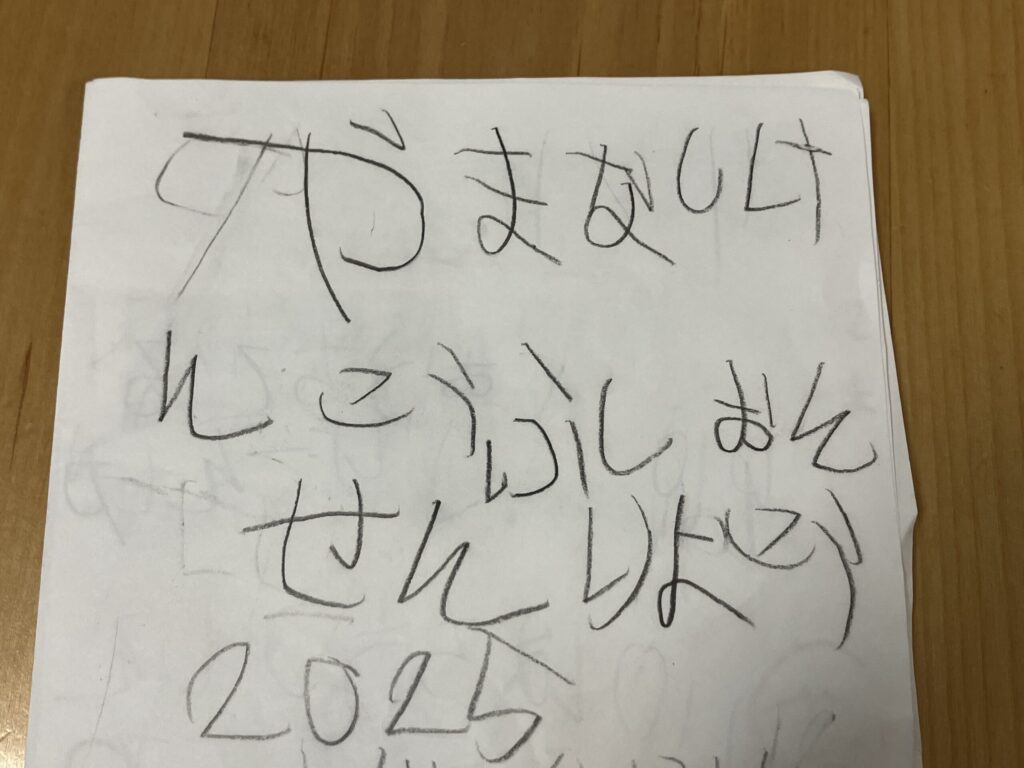 やまなしけ
んこうふし おん
せん りょこう
2025